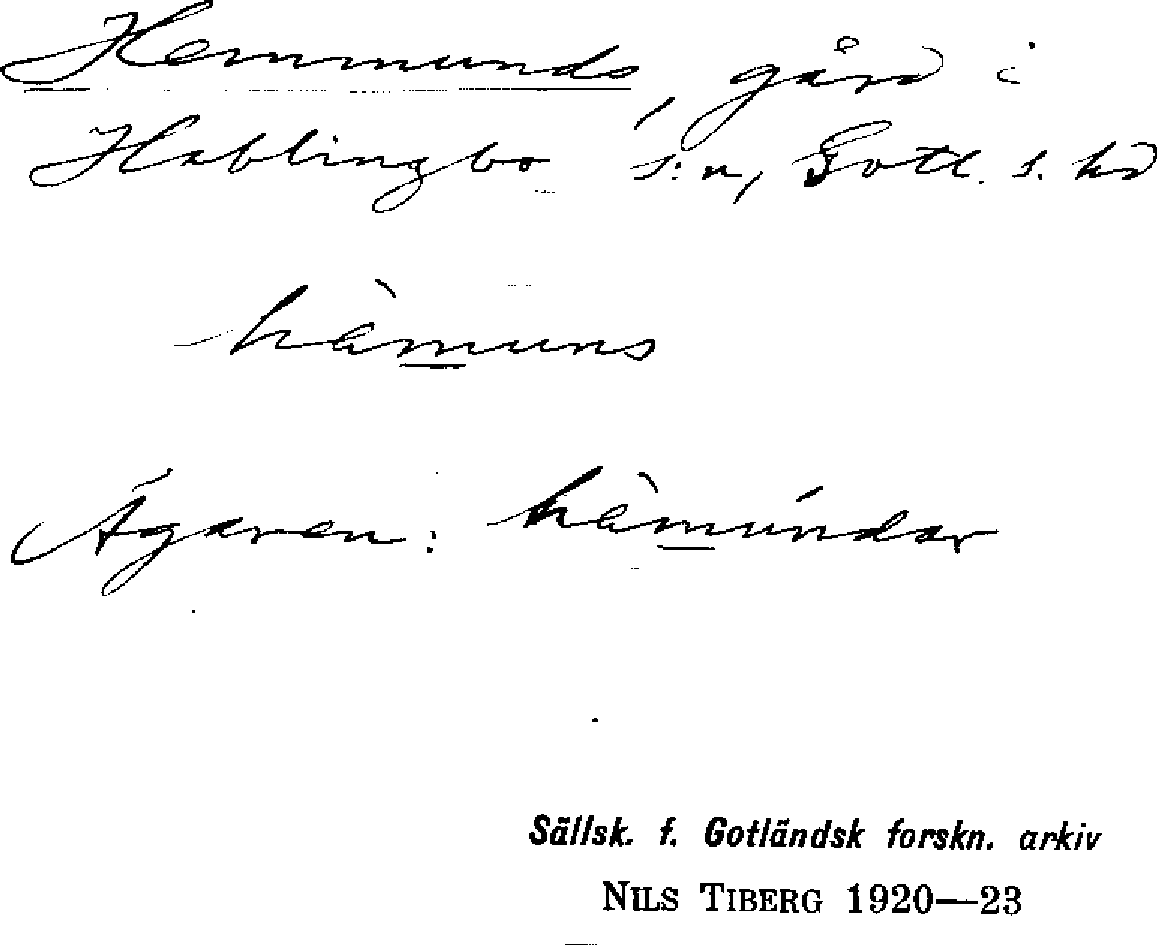 Hemmunds, gård i
Hablingbo s:n, Gotl. s. hd
hèmuns
Ägaren: hèmúndar
Sällsk. f. Gotländsk forskn. arkiv
NILS TIBERG 1920—23